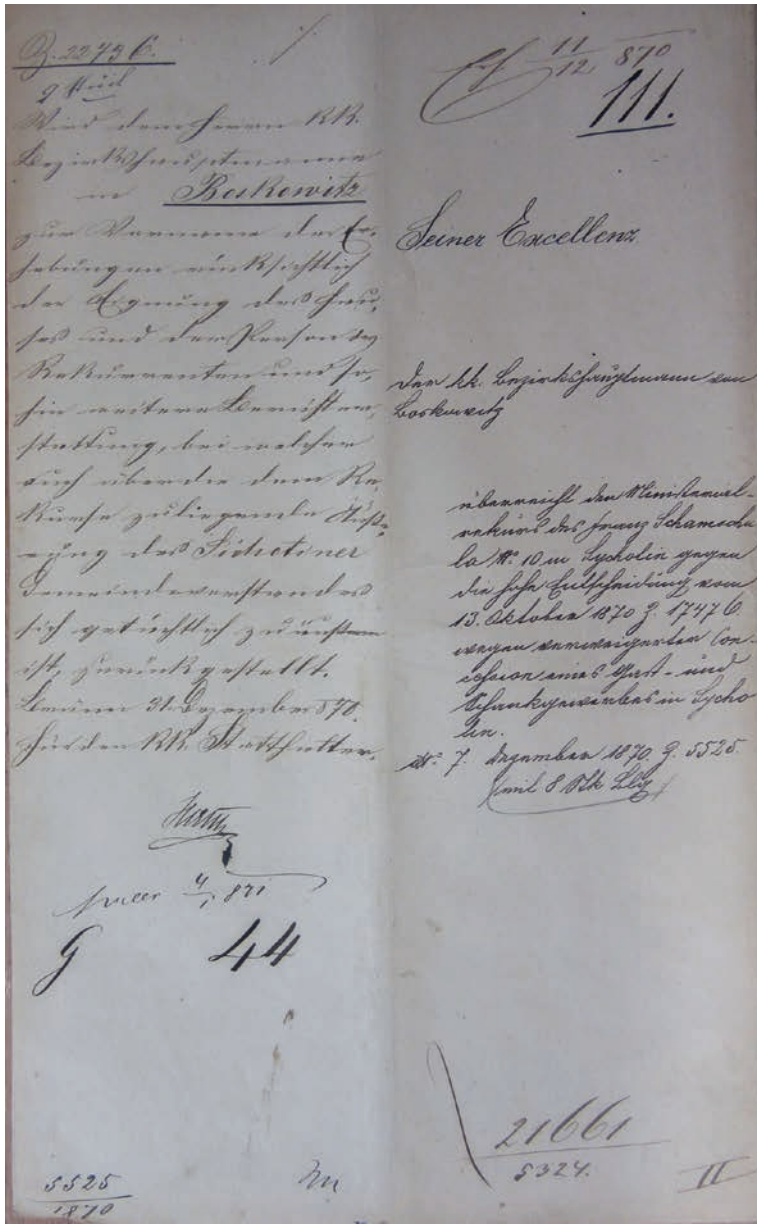 Z. 22736.
9 Stück
Wird dem Herrn KK.
Bezirkshauptmanne
in Boskowitz
zur Vornahme der Er-
hebungen rücksichtlich
der Eignung des Hau-
ses und der Person des
Rekurrenten und so-
hin weitere Berichter-
stattung, bei welcher
auch über die dem Re-
kurse zuliegende Äuße-
rung des Lichotiner
Gemeindevorstandes
sich zu äußern
ist, zurückgestellt.
Brünn 31. Dezember 870.
Für den KK. Statthalter.
4/1 871
G 44
5525
1870
11/12 870
111.
Seiner Excellenz
Der kk. Bezirkshauptmann von
Boskowitz
überreicht den Ministerial-
rekurs des Franz Schamscha
No. 10 in Lycholin gegen
die hohe Entscheidung vom
13. Oktober 1870 Z. 17476
wegen verweigerter Con-
cession eines Gast- und
Schankgewerbes in Lycho
lin.
7. Dezember 1870. Z. 5525
mit 8 Stk Blg
21661
5324.
II